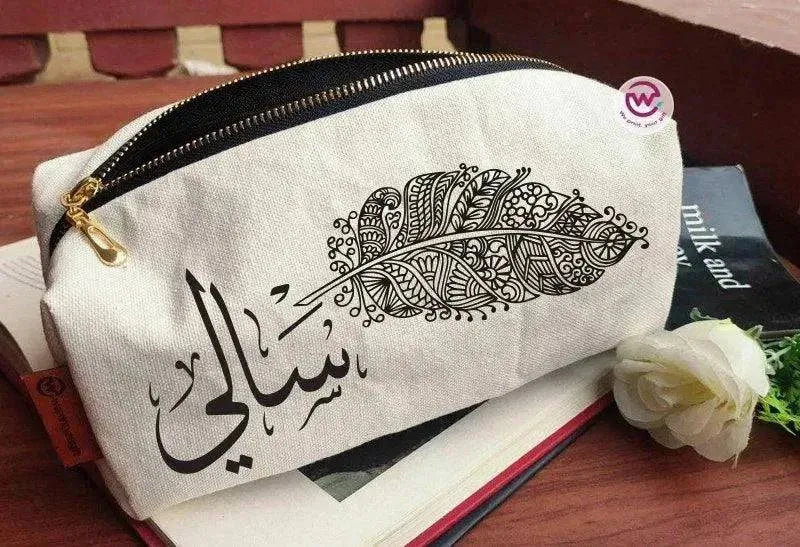 سالي
We print your gift
milk and